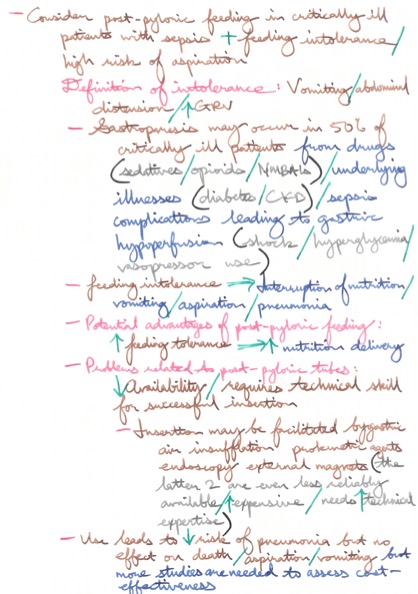 - Consider post-pyloric feeding in critically ill
patients with sepsis + feeding intolerance/
high risk of aspiration
Definition of intolerance: Vomiting/abdominal
distension/↑GRV
- Gastroparesis may occur in 50% of
critically ill patients from drugs
(sedatives/opioids/NMBAs)/underlying
illnesses (diabetes/CKD)/sepsis
complications leading to gastric
hypoperfusion (shock/hyperglycemia/
vasopressor use)
- feeding intolerance → Interruption of nutrition/
vomiting/aspiration/pneumonia
- Potential advantages of post-pyloric feeding:
↑ feeding tolerance → ↑ nutrition delivery
- Problems related to post-pyloric tubes:
↓Availability/requires technical skill
for successful insertion
- Insertion may be facilitated by gastric
air insufflation prokinetic agents
endoscopy external magnets (the
latter 2 are even less reliably
available/↑expensive/needs↑technical
expertise)
- Use leads to ↓ risk of pneumonia but no
effect on death/aspiration/vomiting but
more studies are needed to assess cost-
effectiveness